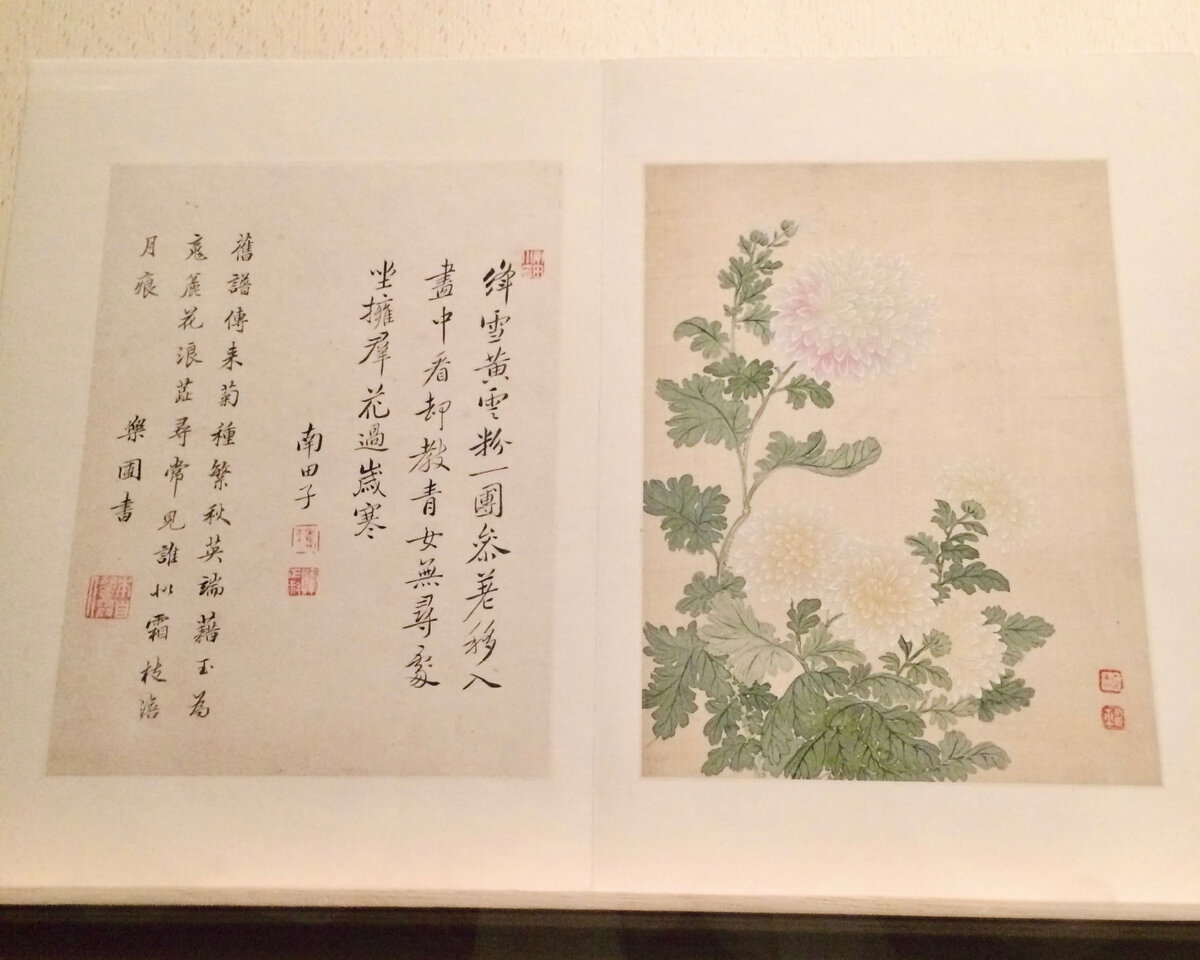 絳雪黃雲粉一團參差移入
畫中看却教青女無尋處
坐擁羣花過歲寒
南田子
舊譜傳來菊種繁秋英端藉玉為
花浪蕊尋常見誰似霜枝
月痕
樂圃書